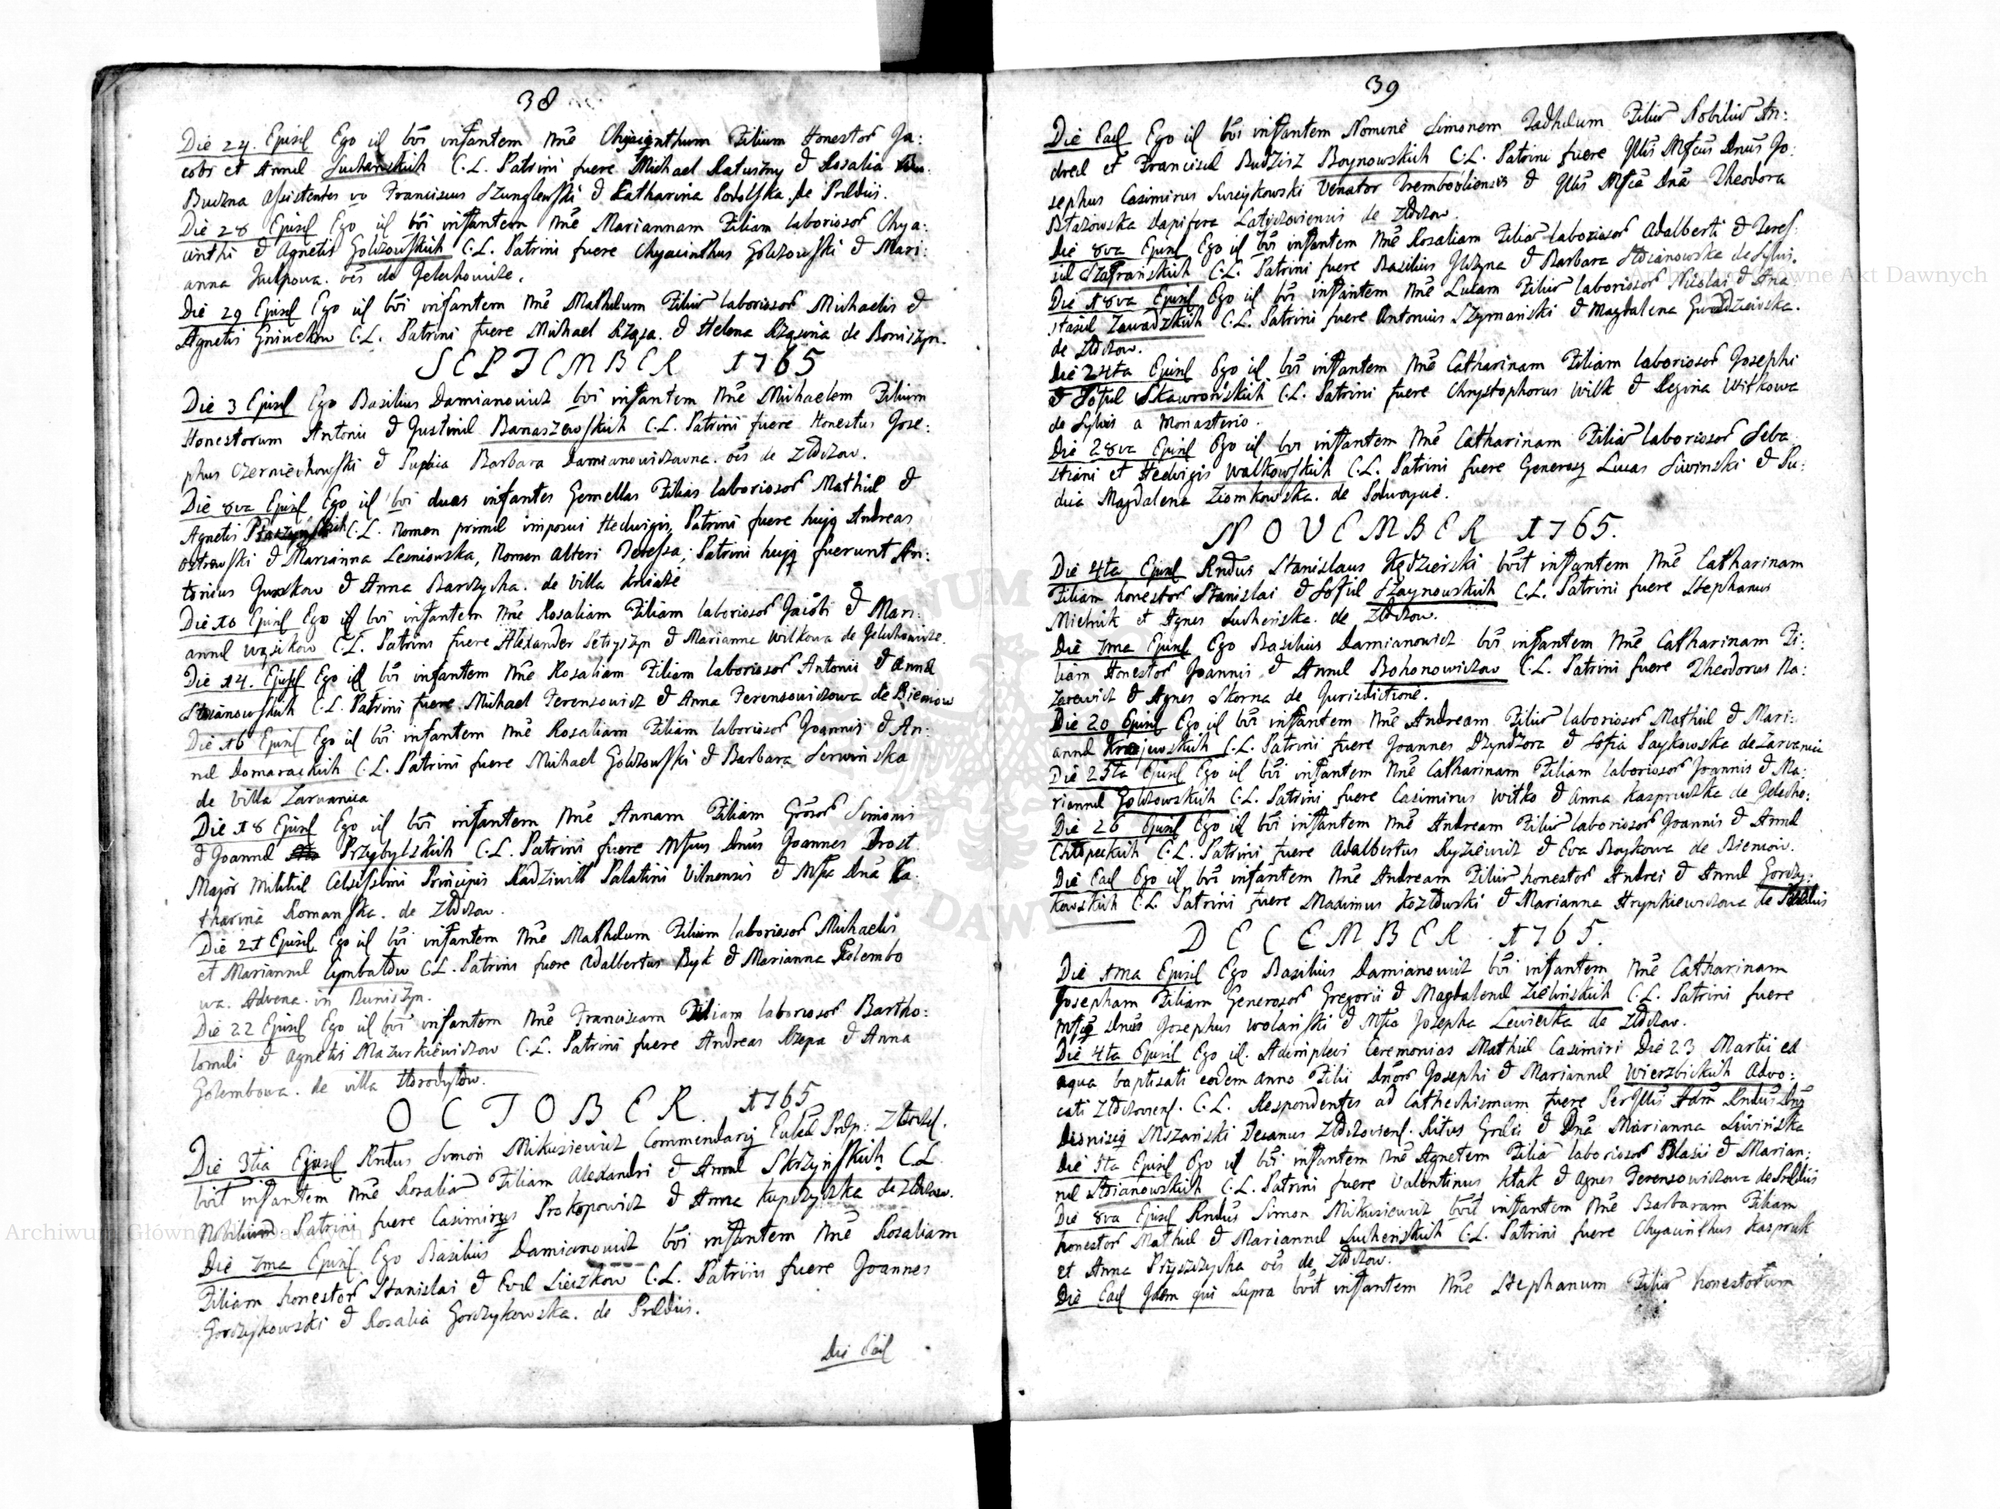 38
Die 24. Ejusd Ego id bṽi infantem Nñe Chyacynthum Filium Honestor Ja:
cobi et Annæ Sucheńskich C.L. Patrini fuere Michael Ratuszny & Rosalia
Buczna Assistentes vo Franciscus & Katharina Podolska de Prædiis.
Die 28 Ejusd Ego id bṽi infantem Nñe Mariannam Filiam laboriosor Chya:
cinthi & Agnetis Golczowskich C.L. Patrini fuere Chyacinthus Golczowski & Mari:
anna oēs de Jelechowice.
Die 29 Ejusd Ego id bṽi infantem Nñe Mathæum Filiũ laboriosor Michaelis &
Agnetis C.L. Patrini fuere Michael Rząsa & Helena Rząsina de Boniszyn.
SEPTEMBER 1765
Die 3 Ejusd Ego Basilius Damianowicz bṽi infantem Nñe Michaelem Filium
Honestorum Antonii & Justinæ Banaszewskich C.L. Patrini fuere Honestus Jose:
phus Czerniechowski & Pudica Barbara Damianowiczowna oēs de Złoczow.
Die 8va Ejusd Ego id bṽi duas infantes Gemellas Filias laboriosor Mathiæ &
Agnetis C.L. Nomen primæ imposui Hedwigis, Patrini fuere hujq Andreas
Ostrowski & Marianna Lesniowska, Nomen alteri Teressa, Patrini hujq fuerunt An:
tonius & Anna Barszycha. de Villa Kniaże
Die 10 Ejusd Ego id bṽi infantem Nñe Rosaliam Filiam laboriosor Jacobi & Mari:
annæ Wąsikow C.L. Patrini fuere Alexander & Marianna Wilkowa de Jelechowice.
Die 14. Ejusd Ego id bṽi infantem Nñe Rosaliam Filiam laboriosor Antonii & Annæ
Stoianowskich C.L. Patrini fuere Michael Ferensowicz & Anna Ferensowiczowa de Bieniow
Die 16 Ejusd Ego id bṽi infantem Nñe Rosaliam Filiam laboriosor Joannis & An:
næ Domarackich C.L. Patrini fuere Michael Golczowski & Barbara Serwińska
de Villa Zarvanica
Die 18 Ejusd Ego id bṽi infantem Nñe Annam Filiam Gñosor Simonis
& Joannæ Przybylskich C.L. Patrini fuere Mfcus Dnus Joannes Prost
Major Militiæ Celsissimi Principis Radziwiłł Palatini Vilnensis & Mfca Dña Ca:
tharina Romanska. de Złoczow.
Die 21 Ejusd Ego id bṽi infantem Nñe Mathæum Filium laboriosor Michaelis
et Mariannæ Cymbałow C.L. Patrini fuere Adalbertus Byk & Marianna Golembo
wa. Advena in Buniszyn.
Die 22 Ejusd Ego id bṽi infantem Nñe Franciscam Filiam laboriosor Bartho:
lomæi & Agnetis Mazurkiewiczow C.L. Patrini fuere Andreas Rzepa & Anna
Golembowa. de villa Horodyłow.
OCTOBER 1765
Die 3tia Ejusd Rndus Simon Mikusiewicz Commendariq Eccłæ Præp: Złoczovien.
bvit infantem Nñe Rosaliã Filiam Alexandri & Annæ Skrzyńskich C.L.
Nobilium Patrini fuere Casimirus Prokopowicz & Anna Kupczyska de Złoczow.
Die 7ma Ejusd Ego Basilius Damianowicz bṽi infantem Nñe Rosaliam
Filiam honestor Stanislai & Evæ Lieczkow C.L. Patrini fuere Joannes
Gorczykowski & Rosalia Gorczykowska. de Prædiis.
Die Ead
39
Die Ead Ego id bṽi infantem Nomine Simonem Tadhæum Filiũ Nobiliũ An:
dreæ et Franciscæ Budzisz Boynowskich C.L. Patrini fuere Jllus Mfcus Dnus Jo:
sephus Casimirus Venator Trembowliensis & Jllus Mfca Dña Theodora
Błażowska Dapifera Latyczoviensis de Złoczow.
Die 8va Ejusd Ego id bṽi infantem Nñe Rosaliam Filiã laboriosor Adalberti & Teres:
siæ Szafrańskich C.L. Patrini fuere Basilius & Barbara Stoianowska de Sylvis.
Die 18va Ejusd Ego id bṽi infantem Nñe Lucam Filiũ laboriosor Nicolai & Ana:
stasiæ Zawadzkich C.L. Patrini fuere Antonius Szymański & Magdalena
de Złoczow.
Die 24ta Ejusd Ego id bṽi infantem Nñe Catharinam Filiam laboriosor Josephi
& Sofiæ Skawrońskich C.L. Patrini fuere Chrystophorus Wilk & Regina Wilkowa
de Sylvis a Monasterio.
Die 28va Ejusd Ego id bṽi infantem Nñe Catharinam Filiã laboriosor Seba:
stiani et Hedwigis Walkowskich C.L. Patrini fuere Generosq Lucas Siwinski & Pu:
dica Magdalena Ziomkowska. de
NOVEMBER 1765.
Die 4ta Ejusd Rndus Stanislaus Kędzierski bvit infantem Nñe Catharinam
Filiam honestor Stanislai & Sofiæ Szaynowskich C.L. Patrini fuere Stephanus
Mielnik et Agnes Sucheńska. de Złoczow.
Die 7ma Ejusd Ego Basilius Damianowicz bṽi infantem Nñe Catharinam Fi:
liam Honestor Joannis & Annæ Bohonowiczow C.L. Patrini fuere Theodorus Na:
zarewicz & Agnes Skorna de Jurisdictione.
Die 20 Ejusd Ego id bṽi infantem Nñe Andream Filiũ laboriosor Mathiæ & Mari:
annæ Krajewskich C.L. Patrini fuere Joannes Dzyndzora & Sofia Paykowska de Zarvanica
Die 25ta Ejusd Ego id bṽi infantem Nñe Catharinam Filiam laboriosor Joannis & Ma:
riannæ Golczowskich C.L. Patrini fuere Casimirus Witko & Anna Kaspruczka de Jelecho:
Die 26 Ejusd Ego id bṽi infantem Nñe Andream Filiũ laboriosor Joannis & Annæ
Chłopeckich C.L. Patrini fuere Adalbertus Ryziewicz & Eva Boykowa de Bieniow.
Die Ead Ego id bṽi infantem Nñe Andream Filiũ honestor Andrei & Annæ Gorczy:
kowskich C.L. Patrini fuere Maximus Kozłowski & Marianna Hrynkiewiczowa de Prædiis
DECEMBER 1765.
Die 1ma Ejusd Ego Basilius Damianowicz bṽi infantem Nñe Catharinam
Josepham Filiam Generosor Gregorii & Magdalenæ Zielińskich C.L. Patrini fuere
Mfcq Dnus Josephus Wolański & Mfca Josepha Lewicka de Złoczow.
Die 4ta Ejusd Ego id. Adimplevi Ceremonias Mathiæ Casimiri Die 23 Martii ex
aqua baptisati eodem anno Filii Dnor Josephi & Mariannæ Wierzbickich Advo:
cati Złoczoviens. C.L. Respondentes ad Cathechismum fuere Perjllus Adm Rndus Dnq
Dionisiq Mszański Decanus Złoczoviens. Ritus Græci & Dña Marianna Siwińska
Die 5ta Ejusd Ego id bṽi infantem Nñe Agnetem Filiã laboriosor Blasii & Marian:
næ Stoianowskich C.L. Patrini fuere Valentinus Ktak & Agnes Ferensowiczowa de Prædiis
Die 8va Ejusd Rndus Simon Mikusiewicz bvit infantem Nñe Barbaram Filiam
honestor Mathiæ & Mariannæ Sucheńskich C.L. Patrini fuere Chyacinthus Kaspruk
et Anna Pryszczycha oēs de Złoczow.
Die Ead Jdem qui Supra bvit infantem Nñe Stephanum Filiũ honestorum
Archiwum Główne Akt Dawnych
Archiwum Główne Akt Dawnych